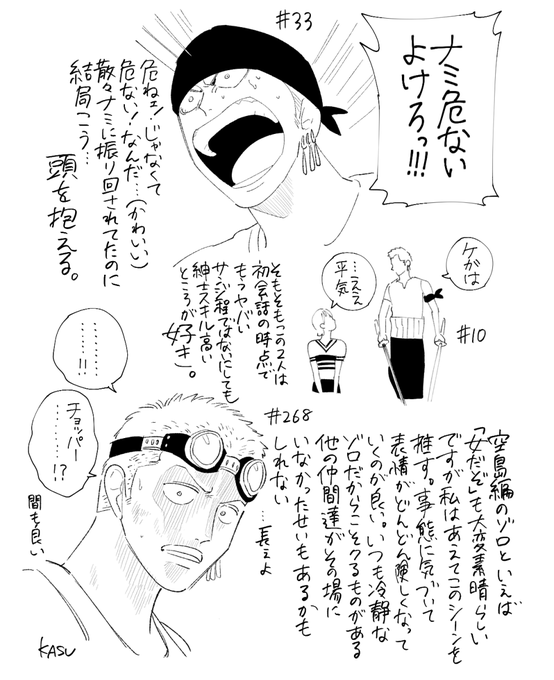 #33
ナミ危ない
よけろっ!!!
危ねェ!じゃなくて
危ない!なんだ…(かわいい)
散々ナミに振り回されてたのに
結局こう…
頭を抱える。
ケガは
…ええ
平気
#10
そもそもこの2人は
初会話の時点で
もうヤバい
サンジ程ではないにしても
紳士スキル高い
ところが好き。
………
……!!
チョッパー
……!?
間も良い
#268
空島編のゾロといえば
「女だぞ」も大変素晴らしい
ですが私はあえてこのシーンを
推す。事態に気づいて
表情がどんどん険しくなって
いくのが良い。いつも冷静な
ゾロだからこそクるものがある
他の仲間達がその場に
いなかったせいもあるかも
しれない
…長ぇよ
KASU